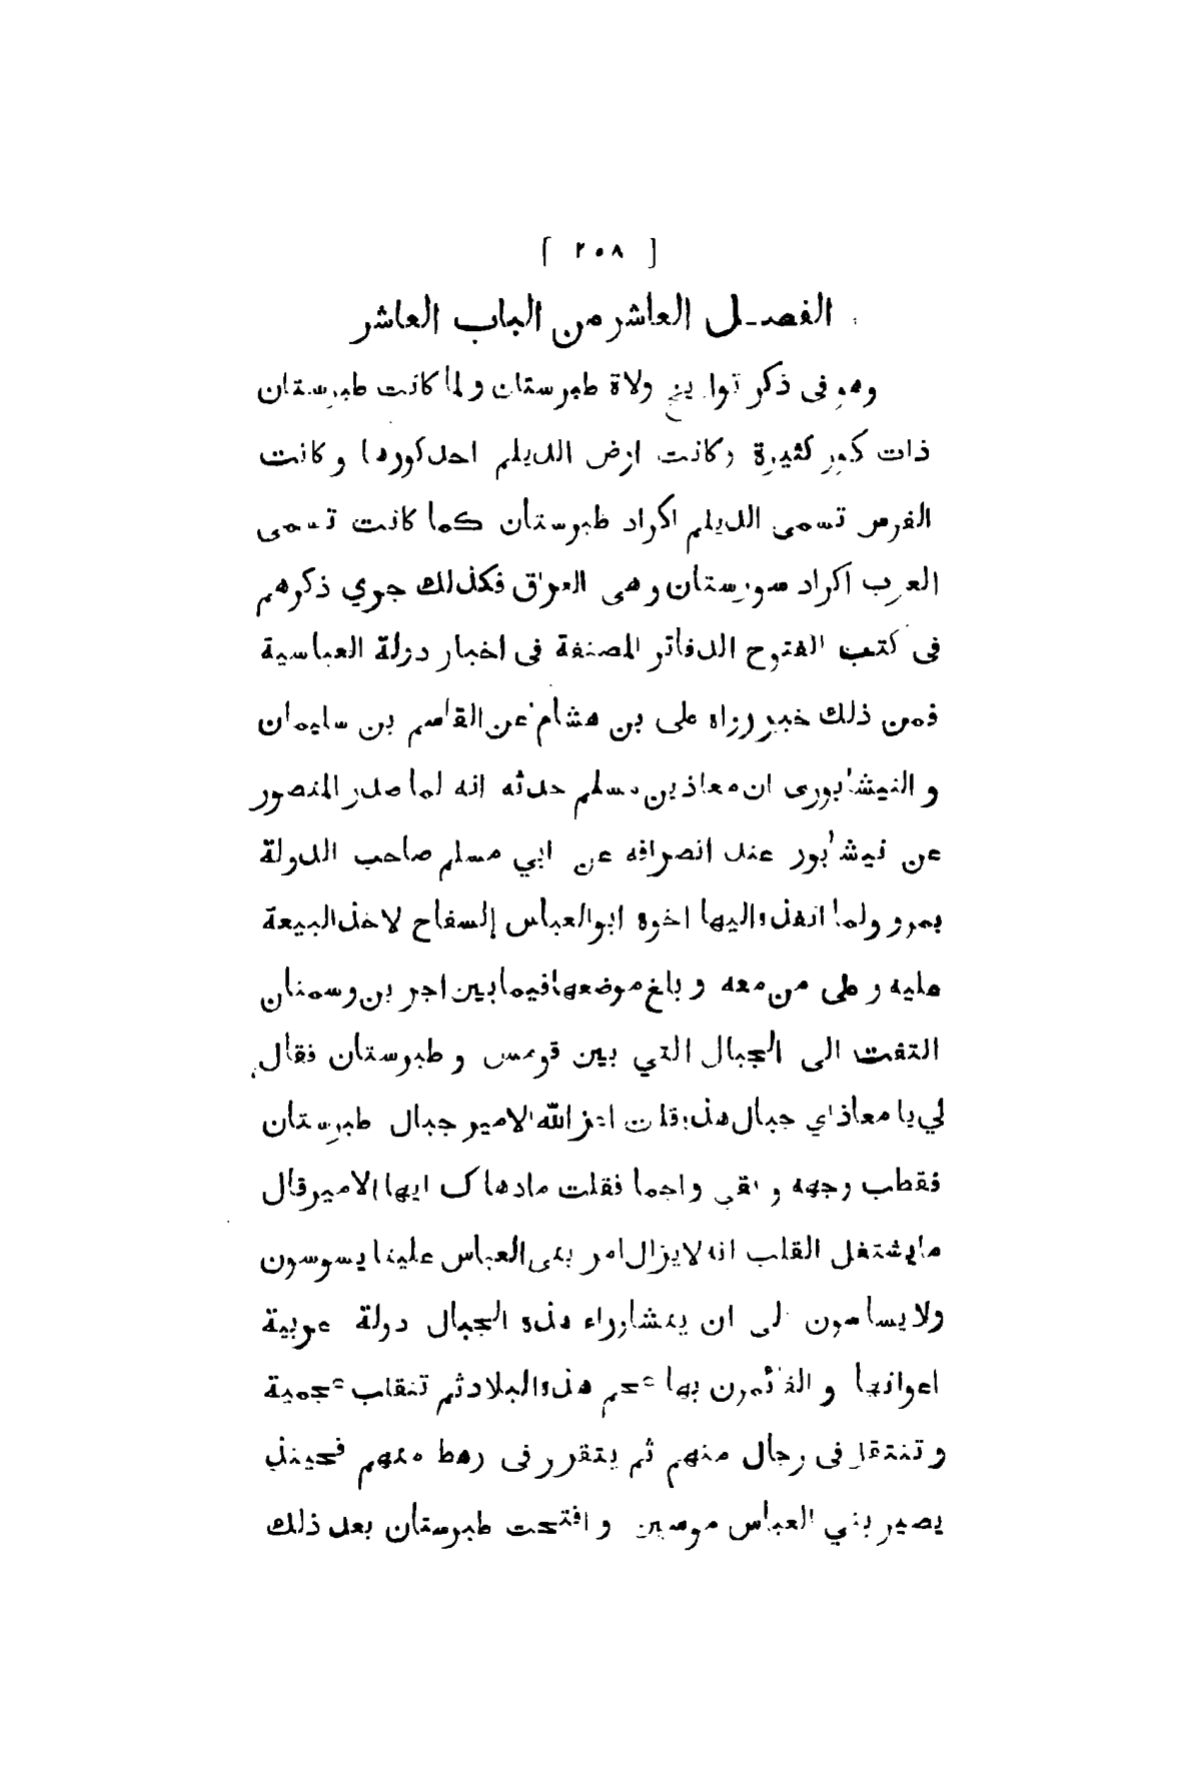 [ ٢٠٨ ]
الفصل العاشر من الباب العاشر
وهو فى ذكر تواريخ ولاة طبرستان ولما كانت طبرستان
ذات كور كثيرة وكانت ارض الديلم احد كورها وكانت
الفرس تسمى الديلم اكراد طبرستان كما كانت تسمى
العرب اكراد سورستان وهى العراق فكذلك جري ذكرهم
فى كتب الفتوح الدفاتر المصنفة فى اخبار دولة العباسية
فمن ذلك خبر رواه على بن هشام عن القاسم بن سليمان
و النيشابورى ان معاذ بن مسلم حدثه انه لما صدر المنصور
عن نيشابور عند انصرافه عن ابي مسلم صاحب الدولة
بمرو ولما انفذه اليها اخوه ابو العباس السفاح لاخذ البيعة
عليه و على من معه و بلغ موضعها فيما بين اجر بن وسمنان
التفت الى الجبال التي بين قومس و طبرستان فقال
لي يا معاذ اي جبال هذه قلت اعز الله الامير جبال طبرستان
فقطب وجهه و بقى واجما فقلت مادهاك ايها الامير قال
ما يشتغل القلب انه لايزال امر بنى العباس علينا يسوسون
ولا يسامون الى ان ينشا وراء هذه الجبال دولة عربية
اعوانها و القائمون بها عجم هذه البلاد ثم تنقلب عجمية
و تنتقل فى رجال منهم ثم يتقرر فى رهط منهم فحينئذ
يصير بني العباس موسين و افتتحت طبرستان بعد ذلك